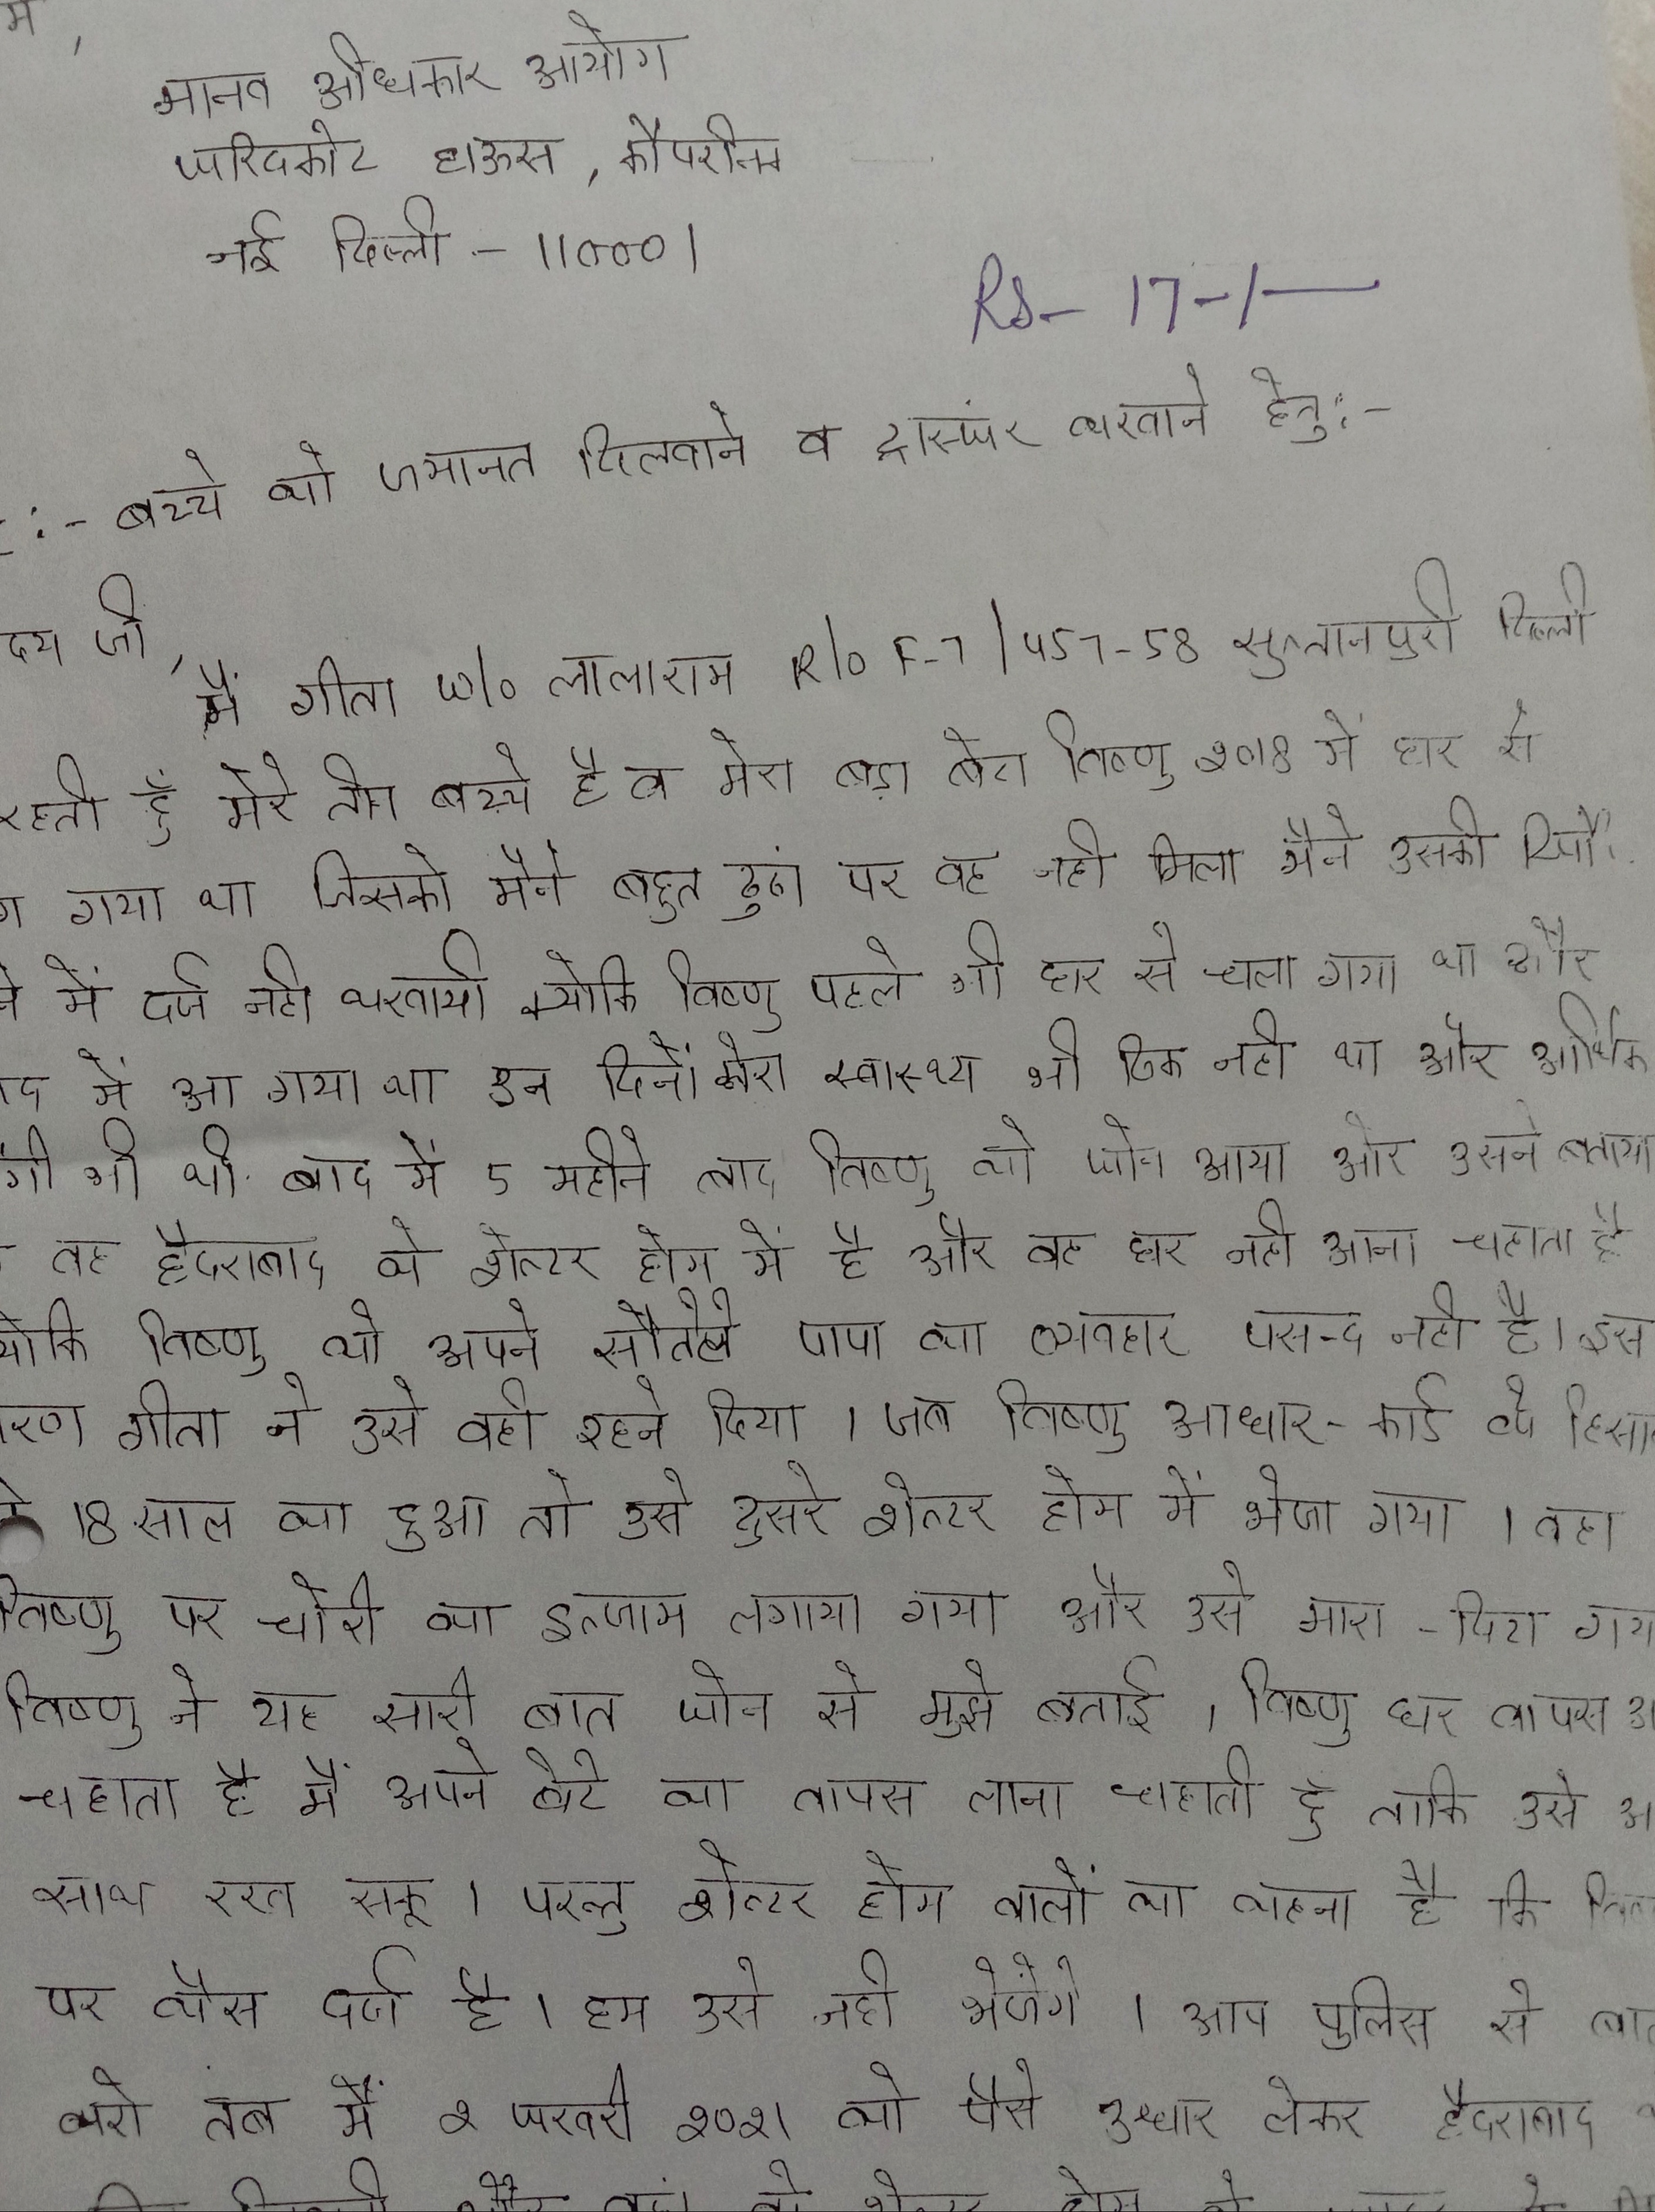 मानव अधिकार आयोग
फरिदकोट हाऊस, कौपरनिक
नई दिल्ली - 110001
Rs- 17-/-
:- बच्चे को जमानत दिलवाने व ट्रास्फंर करवाने हेतु:-
जी,
मैं गीता w/o लालाराम R/o F-7/457-58 सुल्तानपुरी दिल्ली
रहती हुँ मेरे तीन बच्चे है व मेरा बड़ा बेटा विष्णु 2018 में घर से
गया था जिसको मैने बहुत ढुढां पर वह नही मिला मैने उसकी
में दर्ज नही करवायी क्योकि विष्णु पहले भी घर से चला गया था और
में आ गया था इन दिनों मेरा स्वास्थ्य भी ठिक नही था और आर्थिक
भी थी. बाद में 5 महीने बाद विष्णु को फोन आया और उसने बताया
वह हैदराबाद के शेल्टर होम में है और वह घर नही आना चहाता है
विष्णु को अपने सौतेले पापा का व्यवहार पसन्द नही है। इस
गीता ने उसे वही रहने दिया । जब विष्णु आधार-कार्ड के
18 साल का हुआ तो उसे दुसरे शेल्टर होम में भेजा गया । वहा
विष्णु पर चोरी का इल्जाम लगाया गया और उसे मारा-पिटा
विष्णु ने यह सारी बात फोन से मुझे बताई । विष्णु घर वापस
चहाता है मैं अपने बेटे का वापस लाना चहाती हुँ ताकि उसे
साथ रख सकू । परन्तु शेल्टर होम वालों का कहना है कि
पर केस दर्ज है । हम उसे नही भेजेंगे । आप पुलिस से
करो तब मैं 2 फरवरी 2021 को पैसे उधार लेकर हैदराबाद